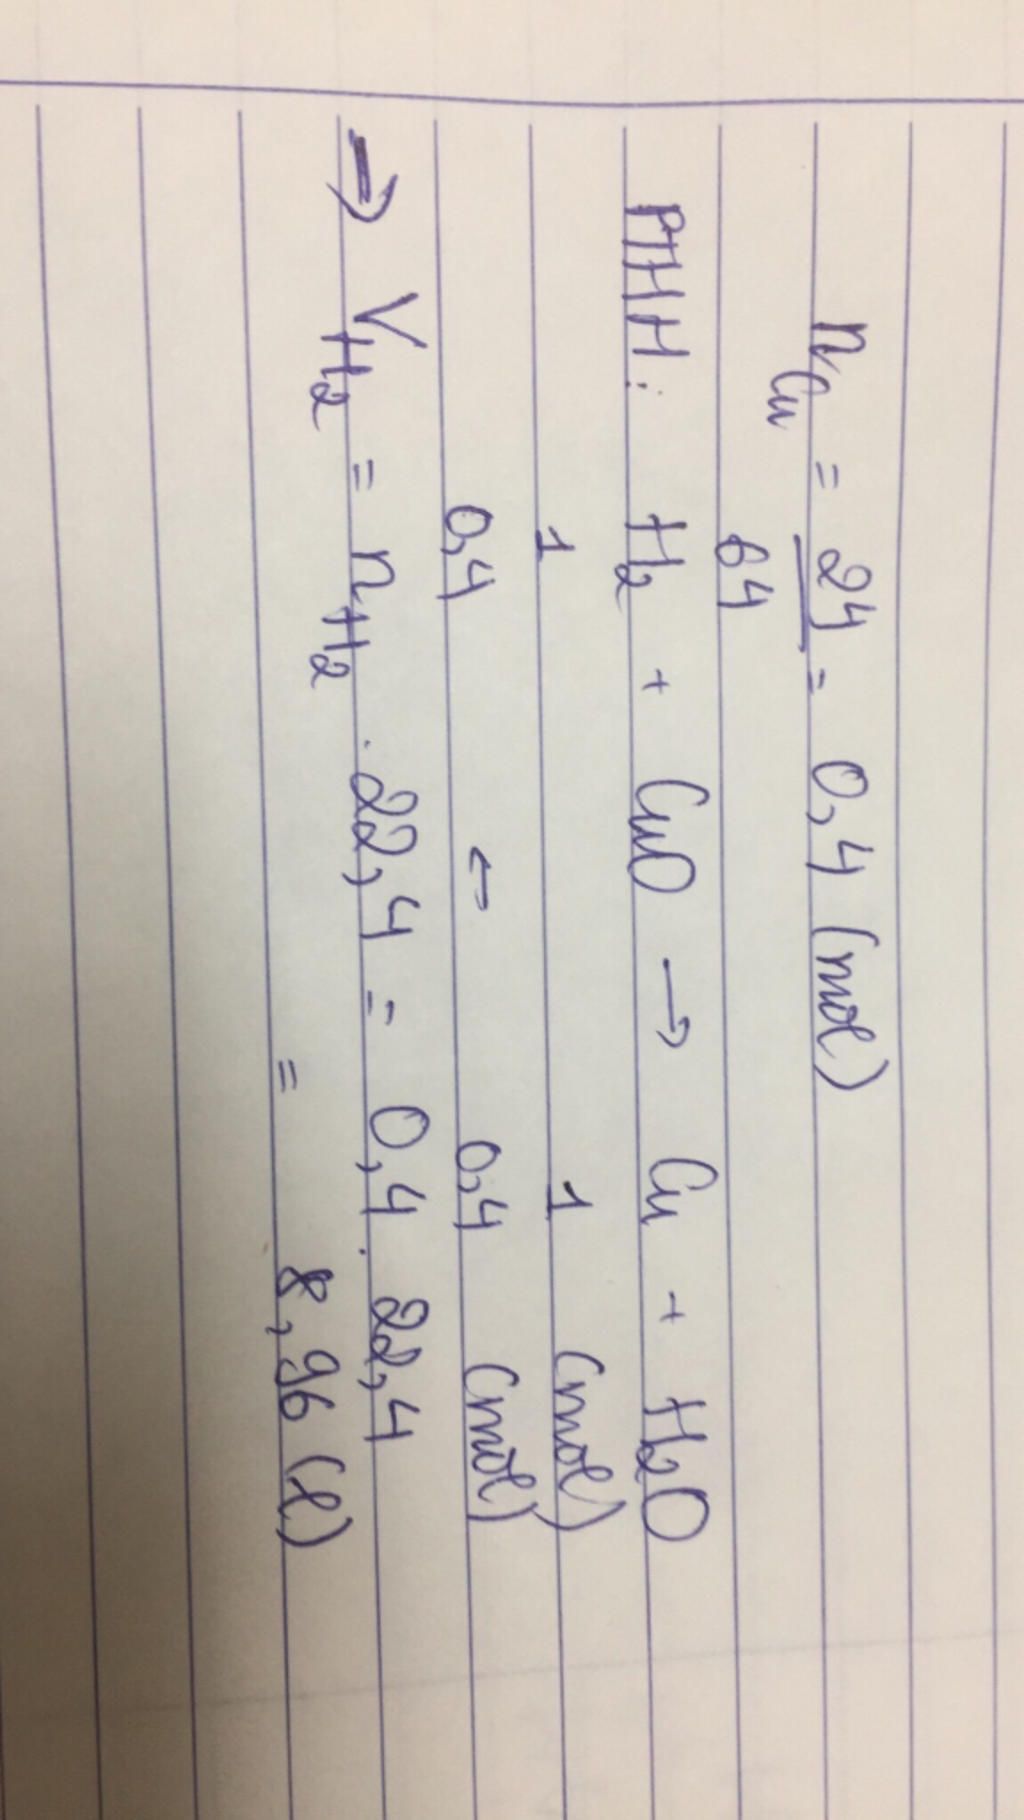 n Cu = 24 = 0,4 (mol)
64
PTHH: H2 + CuO → Cu + H2O
1 1 (mol)
0,4 ← 0,4 (mol)
→ V H2 = n H2 . 22,4 = 0,4 . 22,4
= 8,96 (l)